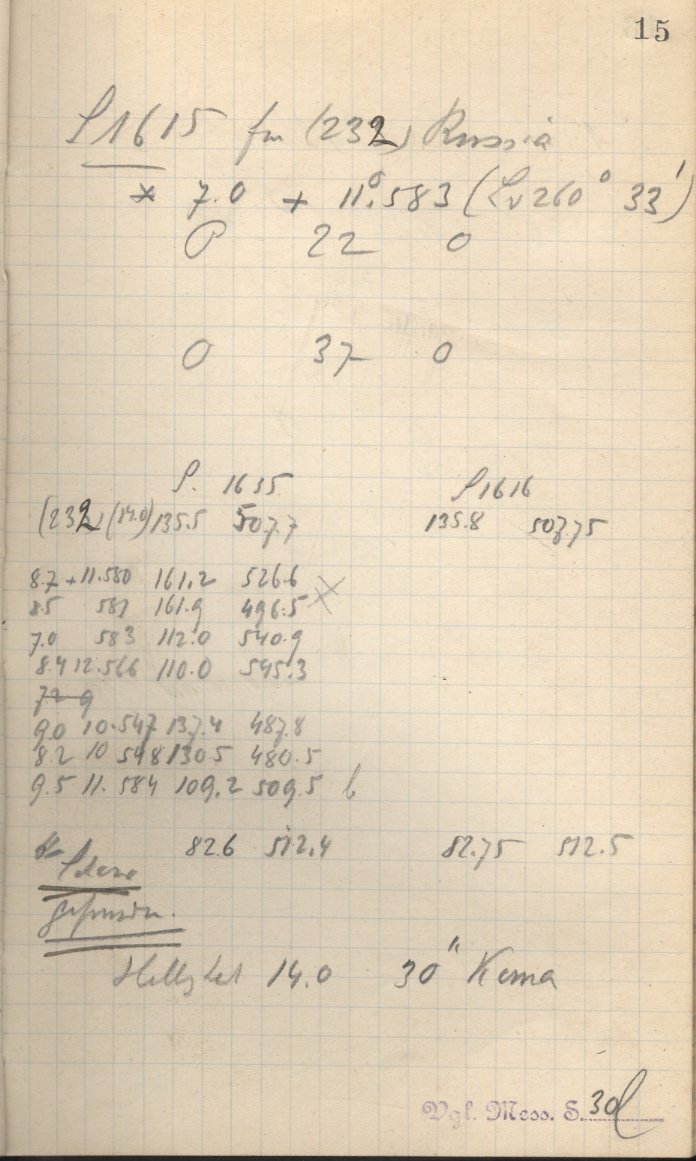 15
P1615 für (232) Russia
* 7.0 + 11°.583 (Lv 260° 33')
P 22 0
0 37 0
P. 1615 P1616
(232) (14.0) 135.5 507.7 135.8 507.75
8.7 + 11.580 161.2 526.6
8.5 581 161.9 496.5 X
7.0 583 112.0 540.9
8.4 12.566 110.0 545.3
9.0 10.547 137.4 487.8
8.2 10 548 130.5 480.5
9.5 11. 584 109.2 509.5 b
82.6 512.4 82.75 512.5
gefunden.
Helligkeit 14.0 30" Koma
Vgl. Mess. S. 30